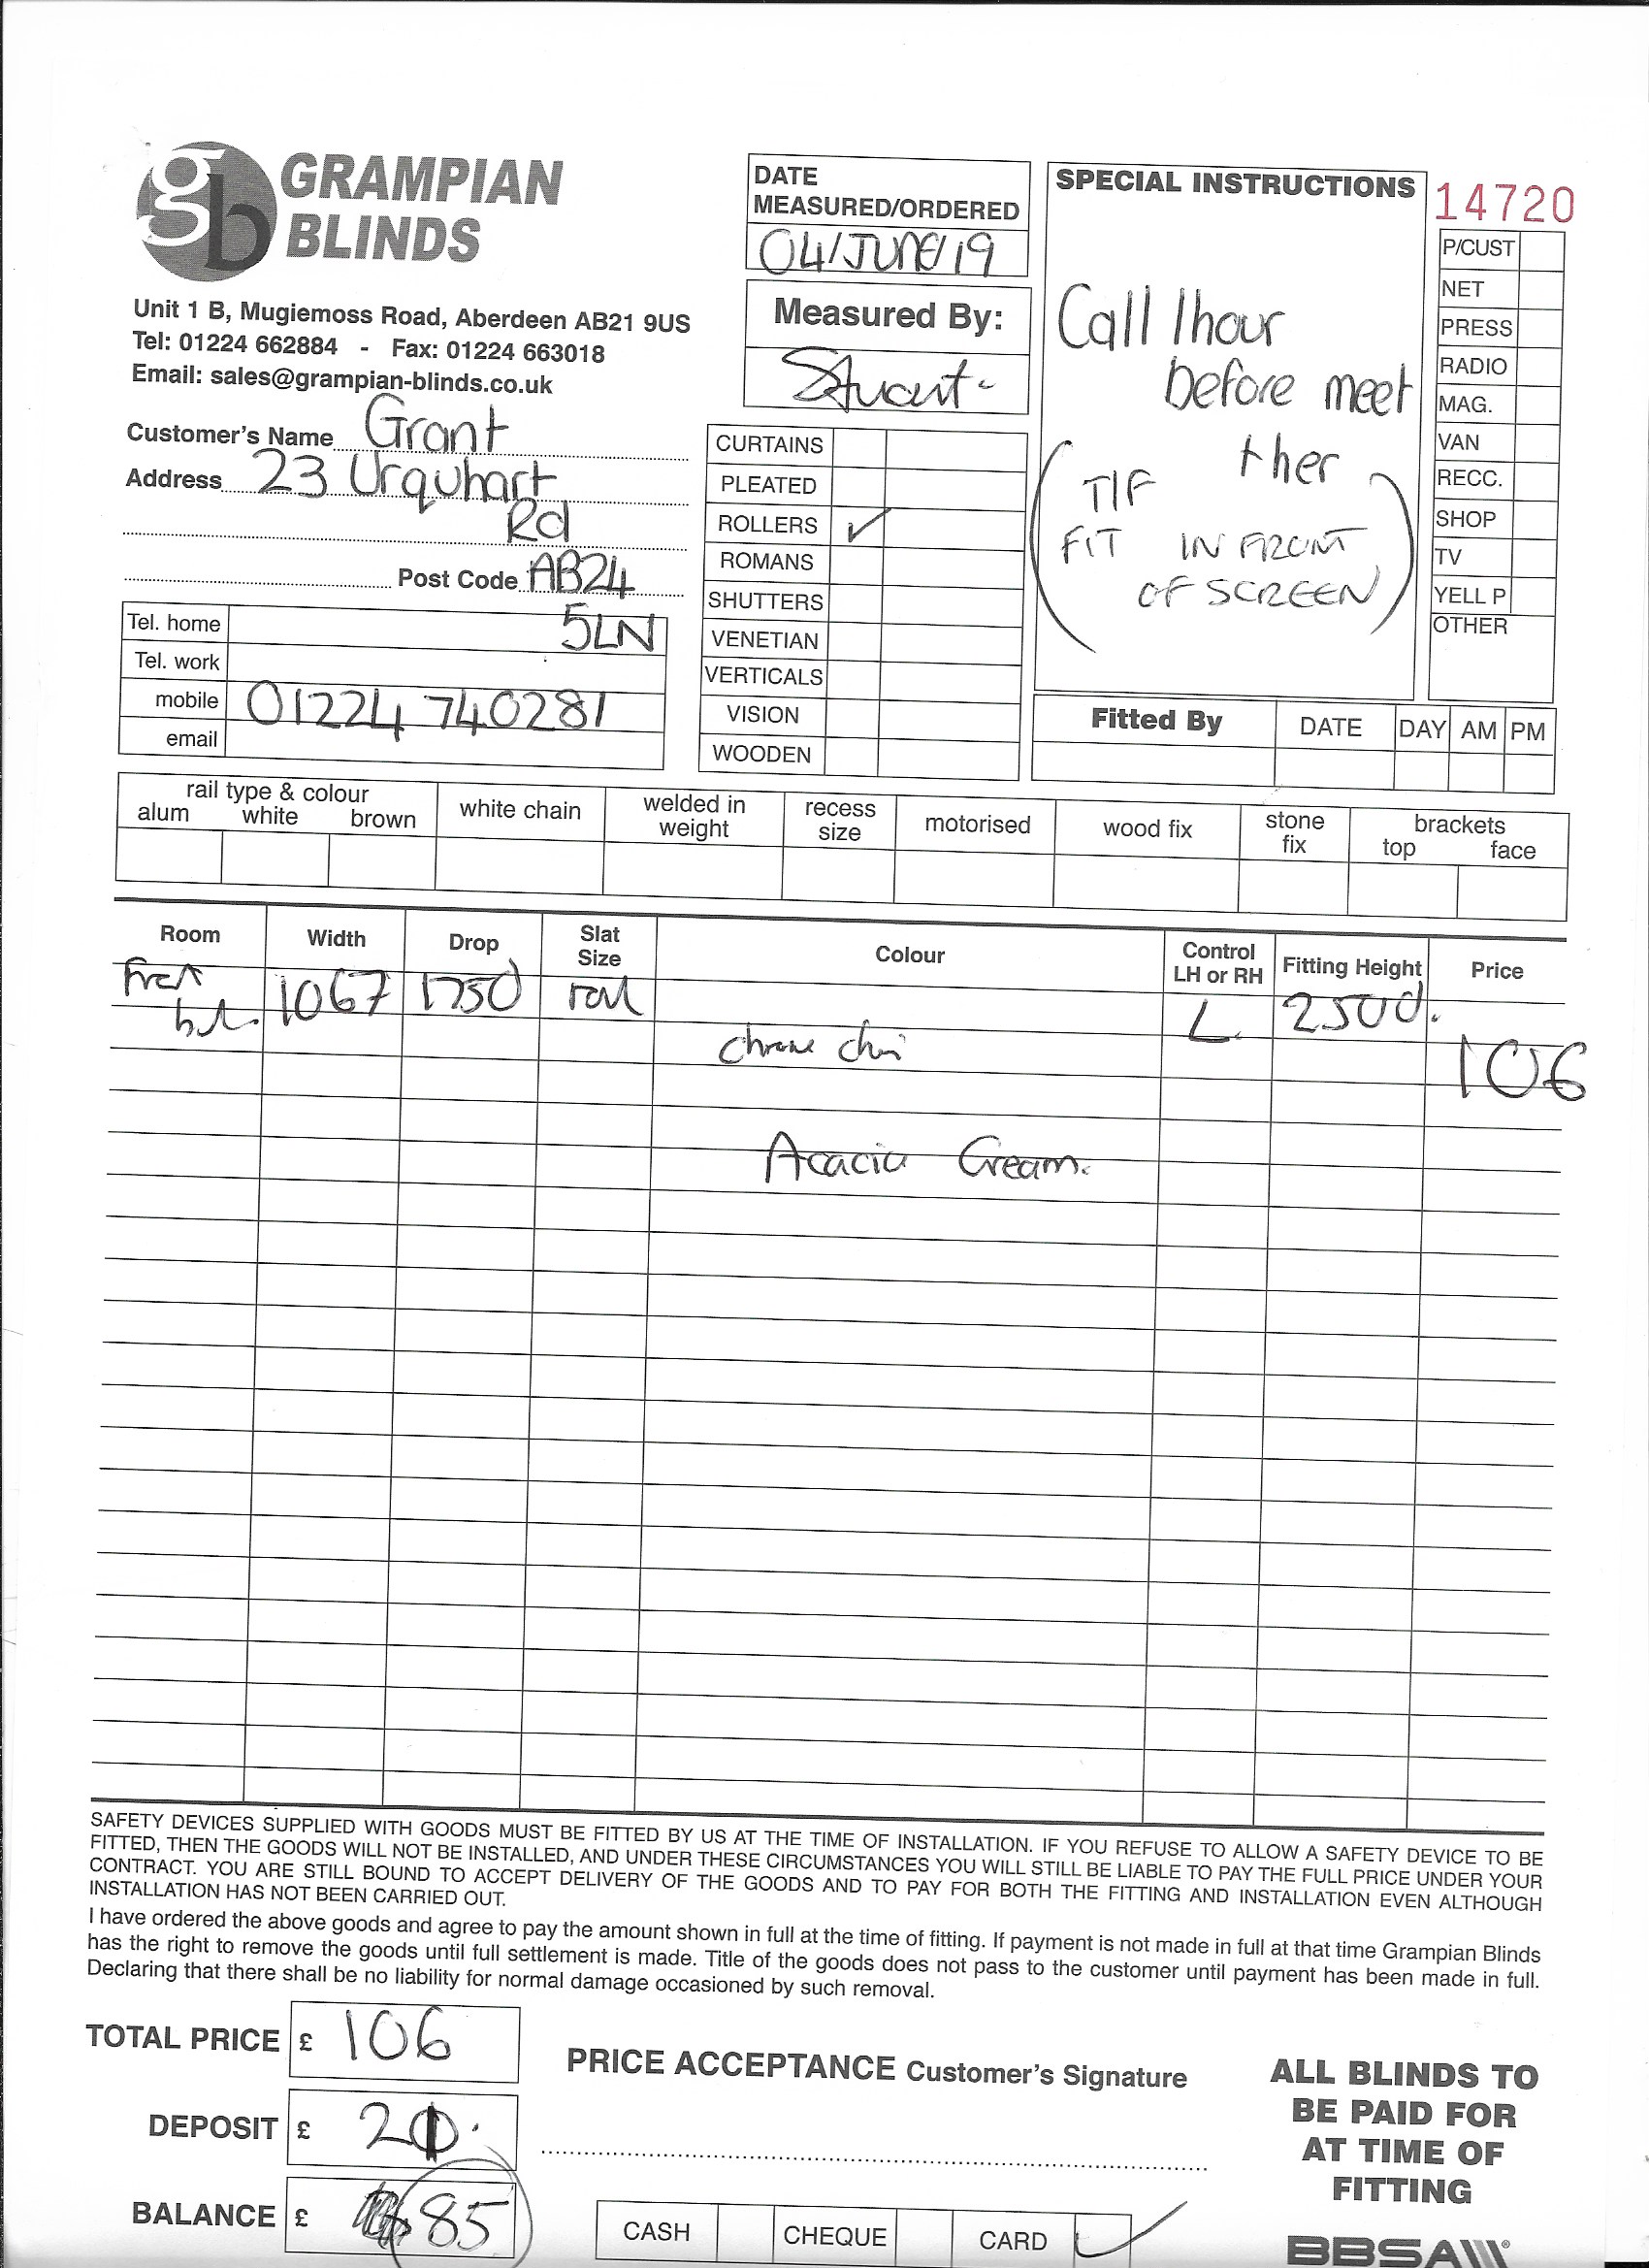 gb GRAMPIAN
BLINDS
Unit 1 B, Mugiemoss Road, Aberdeen AB21 9US
Tel: 01224 662884 - Fax: 01224 663018
Email: sales@grampian-blinds.co.uk
Customer's Name Grant
Address 23 Urquhart
Rd
Post Code AB24
5LN
Tel. home
Tel. work
mobile 01224 740281
email
DATE
MEASURED/ORDERED
04/JUNE/19
Measured By:
Stuart
CURTAINS
PLEATED
ROLLERS ✓
ROMANS
SHUTTERS
VENETIAN
VERTICALS
VISION
WOODEN
SPECIAL INSTRUCTIONS
Call 1hour
before meet
ther
(TIF
FIT IN FRONT
OF SCREEN)
14720
P/CUST
NET
PRESS
RADIO
MAG.
VAN
RECC.
SHOP
TV
YELL P
OTHER
Fitted By DATE DAY AM PM
rail type & colour
alum white brown
white chain
welded in
weight
recess
size
motorised
wood fix
stone
fix
brackets
top face
Room Width Drop Slat Size Colour Control LH or RH Fitting Height Price
1067 1750 L. 2500.
chrome 106
Acacia Cream.
SAFETY DEVICES SUPPLIED WITH GOODS MUST BE FITTED BY US AT THE TIME OF INSTALLATION. IF YOU REFUSE TO ALLOW A SAFETY DEVICE TO BE
FITTED, THEN THE GOODS WILL NOT BE INSTALLED, AND UNDER THESE CIRCUMSTANCES YOU WILL STILL BE LIABLE TO PAY THE FULL PRICE UNDER YOUR
CONTRACT. YOU ARE STILL BOUND TO ACCEPT DELIVERY OF THE GOODS AND TO PAY FOR BOTH THE FITTING AND INSTALLATION EVEN ALTHOUGH
INSTALLATION HAS NOT BEEN CARRIED OUT.
I have ordered the above goods and agree to pay the amount shown in full at the time of fitting. If payment is not made in full at that time Grampian Blinds
has the right to remove the goods until full settlement is made. Title of the goods does not pass to the customer until payment has been made in full.
Declaring that there shall be no liability for normal damage occasioned by such removal.
TOTAL PRICE £ 106
DEPOSIT £ 21.
BALANCE £ 85
PRICE ACCEPTANCE Customer's Signature
CASH CHEQUE CARD ✓
ALL BLINDS TO
BE PAID FOR
AT TIME OF
FITTING
BBSA